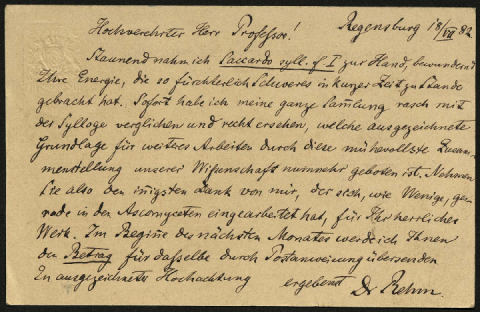 Regensburg 18/VII 82.
Hochverehrter Herr Professor!
Staunend nahm ich Saccardo syll. f. I zur Hand, bewundernd
Ihre Energie, die so fürchterlich Schweres in kurzer Zeit zu Stande
gebracht hat. Sofort habe ich meine ganze Samlung rasch mit
der Sylloge verglichen und recht ersehen, welche ausgezeichnete
Grundlage für weiteres Arbeiten durch diese mühevollste Zusam-
menstellung unserer Wissenschaft nunmehr geboten ist. Nehmen
Sie also den innigsten Dank von mir, der sich, wie Wenige, ge-
rade in den Ascomyceten eingearbeitet hat, für Ihr herrliches
Werk. Im Beginne des nächsten Monates werde ich Ihnen
den Betrag für dasselbe durch Postanweisung übersenden
In ausgezeichneter Hochachtung ergebenst
Dr Rehm.